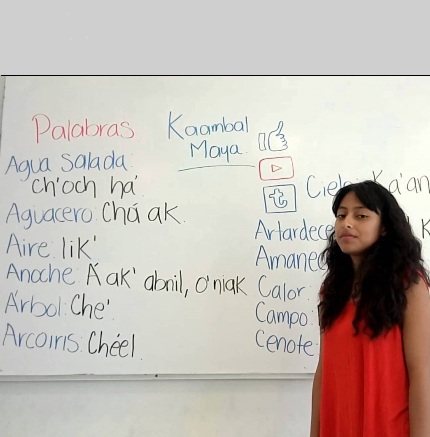 Palabras
Kaambal
Maya
Agua Salada:
ch'och ha'
Aguacero: Chá ak.
Aire: Iik'
Anoche: Á ak' abnil, o'niak
Árbol: Che'
Arcoiris: Chéel.
Ka'an
Calor:
Campo:
Cenote: